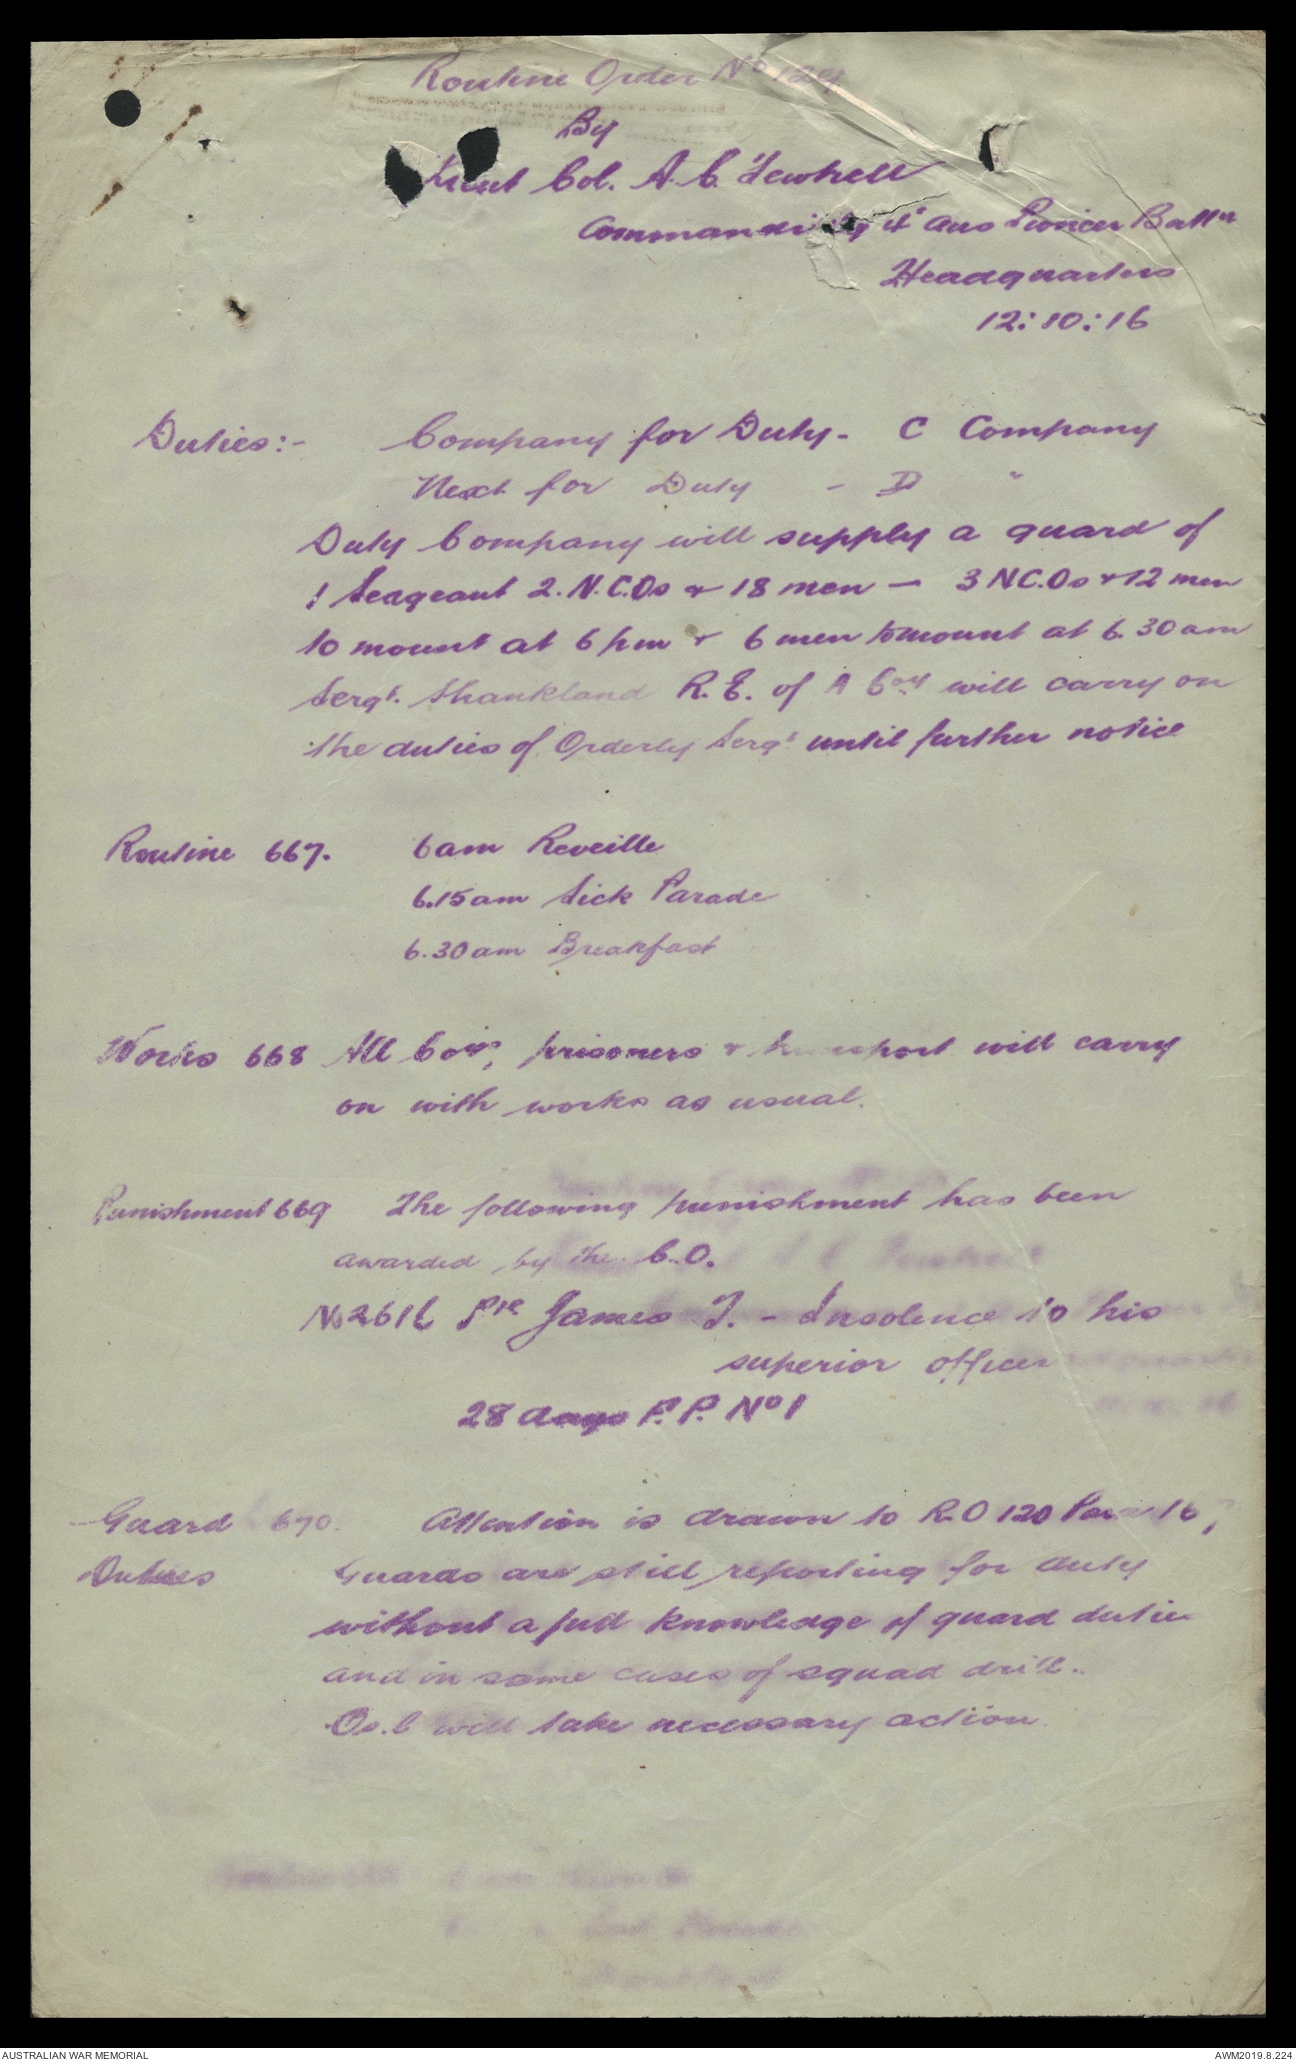 Routine Order No 129
By
Lieut Col. A. C. Fewtrell
Commanding 4th Aus Pioneer Battn
Headquarters
12:10:16
Duties:- Company for Duty - C Company
Next for Duty - D "
Duty Company will supply a guard of
1 Seageant 2. N.C.Os & 18 men - 3 N.C.Os & 12 men
to mount at 6 pm & 6 men to mount at 6.30 am
Sergt. Shankland R.E. of A Coy will carry on
the duties of Orderly Sergt until further notice
Routine 667. 6 am Reveille
6.15 am Sick Parade
6.30 am Breakfast
Works 668 All Coys, prisoners & transport will carry
on with works as usual.
Punishment 669 The following punishment has been
awarded by the C.O.
No 2616 Pte James T. - Insolence to his
superior officer
28 days F.P. No 1
Guard 670. Attention is drawn to R.O 120 Para 16,
Duties Guards are still reporting for duty
without a full knowledge of guard duties
and in some cases of squad drill.
Os.C will take necessary action
AUSTRALIAN WAR MEMORIAL
AWM2019.8.224